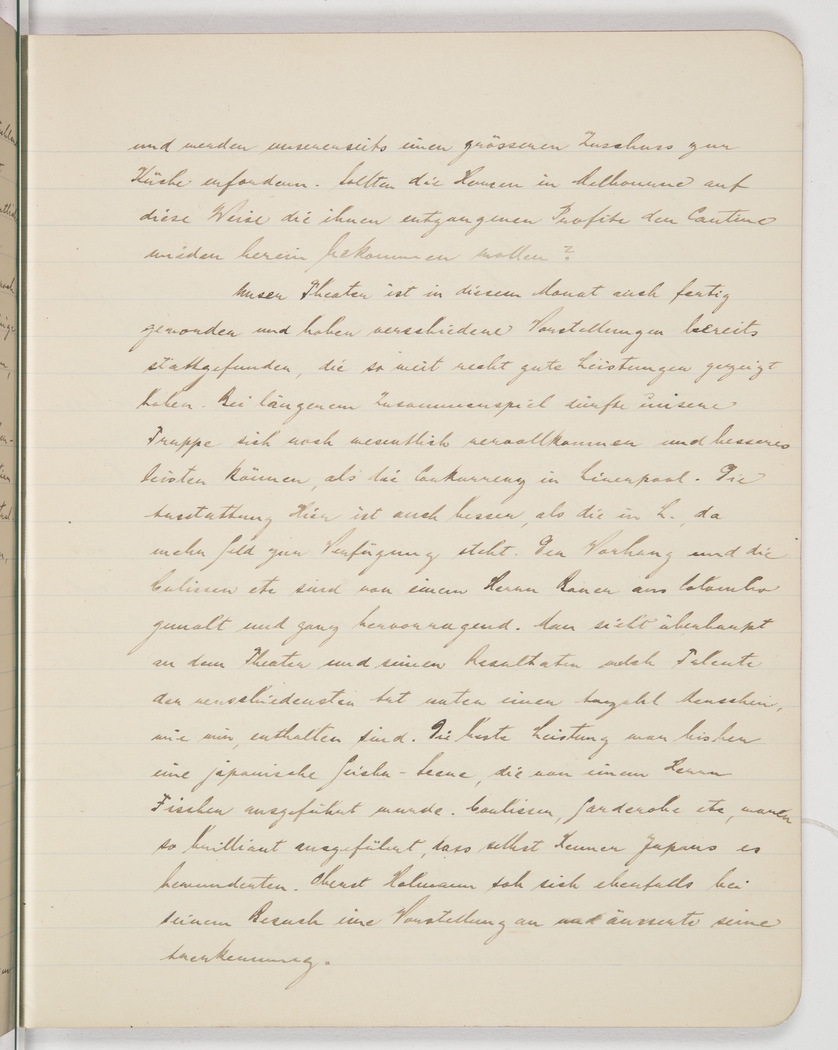 und werden unsererseits einen grösseren Zuschuss zur
Küche erfordern. Sollten die Herren in Melbourne auf
diese Weise die ihnen entgangenen Profite der Cantine
wieder herein bekommen wollen?
Unser Theater ist in diesem Monat auch fertig
geworden und haben verschiedene Vorstellungen bereits
stattgefunden, die so weit recht gute Leistungen gezeigt
haben. Bei längerem Zusammenspiel dürfte unsere
Truppe sich noch wesentlich vervollkommnen und besseres
leisten können, als die Conkurrenz in Liverpool. Die
Ausstattung hier ist auch besser, als die in L., da
mehr Geld zur Verfügung steht. Der Vorhang und die
Coulissen etc sind von einem Herrn Bauer aus Colombo
gemalt und ganz hervorragend. Man sieht überhaupt
an dem Theater und seinen Resultaten welch Talente
der verschiedensten Art unter einer Anzahl Menschen,
wie wir, enthalten sind. Die beste Leistung war bisher
eine japanische Geisha-Scene, die von einem Herrn
Fischer ausgeführt wurde. Coulissen, Garderobe etc, waren
so brilliant ausgeführt, dass selbst Kenner Japans es
bewunderten. Oberst Holmann sah sich ebenfalls bei
seinem Besuch eine Vorstellung an und äusserte seine
Anerkennung.